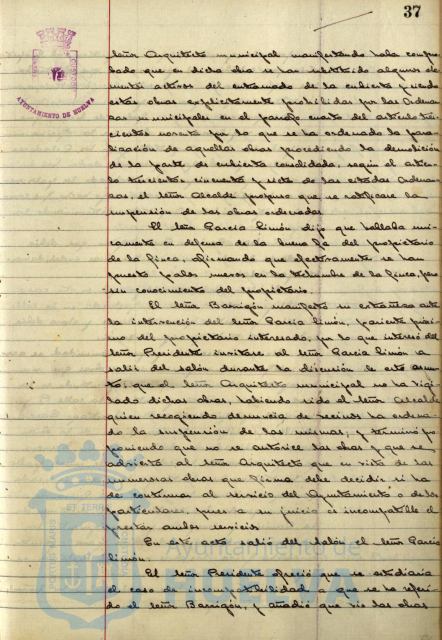 37
AYUNTAMIENTO DE HUELVA
señor Arquitecto municipal manifestando había compro-
bado que en dicha obra se han sustituido algunos ele-
mentos activos del entramado de la cubierta y siendo
estas obras explícitamente prohibidas por las Ordenan-
zas municipales en el párrafo cuarto del artículo tres-
cientos noventa por lo que se ha ordenado la para-
lización de aquellas obras procediendo la demolición
de la parte de cubierta consolidada, según el artícu-
lo trescientos cincuenta y siete de las citadas Ordenan-
zas, el señor Alcalde propuso que se ratificare la
suspensión de las obras ordenadas.
El señor García Limón dijo que hablaba úni-
camente en defensa de la buena fe del propietario
de la finca, afirmando que efectivamente se han
puesto palos nuevos en la techumbre de la finca, pero
sin conocimiento del propietario.
El señor Barrigón manifestó su extrañeza ante
la intervención del señor García Limón, pariente próxi-
mo del propietario interesado, por lo que interesó del
señor Presidente invitase al señor García Limón a
salir del salón durante la discusión de este asun-
to; que el señor Arquitecto municipal no ha vigi-
lado dichas obras, habiendo sido el señor Alcalde
quien recogiendo denuncia de vecinos ha ordena-
do la suspensión de las mismas; y terminó pro-
poniendo que no se autorice las obras y que se
advierta al señor Arquitecto que en vista de las
numerosas obras que firma debe decidir si ha
de continuar al servicio del Ayuntamiento o de los
particulares, pues a su juicio es incompatible el
prestar ambos servicios.
En este acto salió del salón el señor García
Limón.
El señor Presidente ofreció que se estudiaría
el caso de incompatibilidad a que se ha referi-
do el señor Barrigón, y añadió que vió las obras
Ayuntamiento de
HUELVA